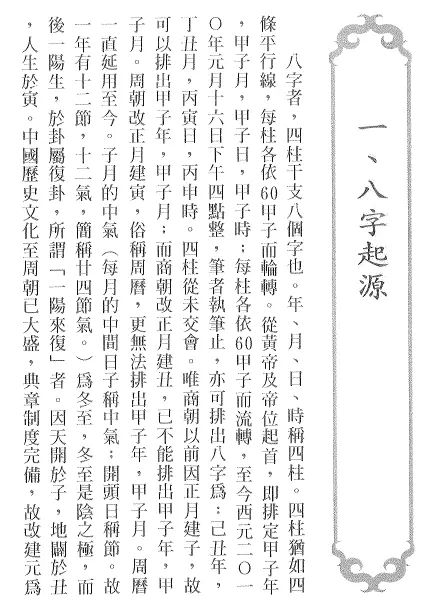 一、八字起源
八字者，四柱干支八個字也。年、月、日、時稱四柱。四柱猶如四
條平行線，每柱各依60甲子而輪轉。從黃帝及帝位起首，即排定甲子年
，甲子月，甲子日，甲子時；每柱各依60甲子而流轉，至今西元二〇一
〇年元月十六日下午四點整，筆者執筆止，亦可排出八字爲：己丑年，
丁丑月，丙寅日，丙申時。四柱從未交會。唯商朝以前因正月建子，故
可以排出甲子年，甲子月；而商朝改正月建丑，已不能排出甲子年，甲
子月。周朝改正月建寅，俗稱周曆，更無法排出甲子年，甲子月。周曆
一直延用至今。子月的中氣（每月的中間日子稱中氣；開頭日稱節。故
一年有十二節，十二氣，簡稱廿四節氣。）爲冬至，冬至是陰之極，而
後一陽生，於卦屬復卦，所謂「一陽來復」者。因天開於子，地闢於丑
，人生於寅。中國歷史文化至周朝已大盛，典章制度完備，故改建元爲